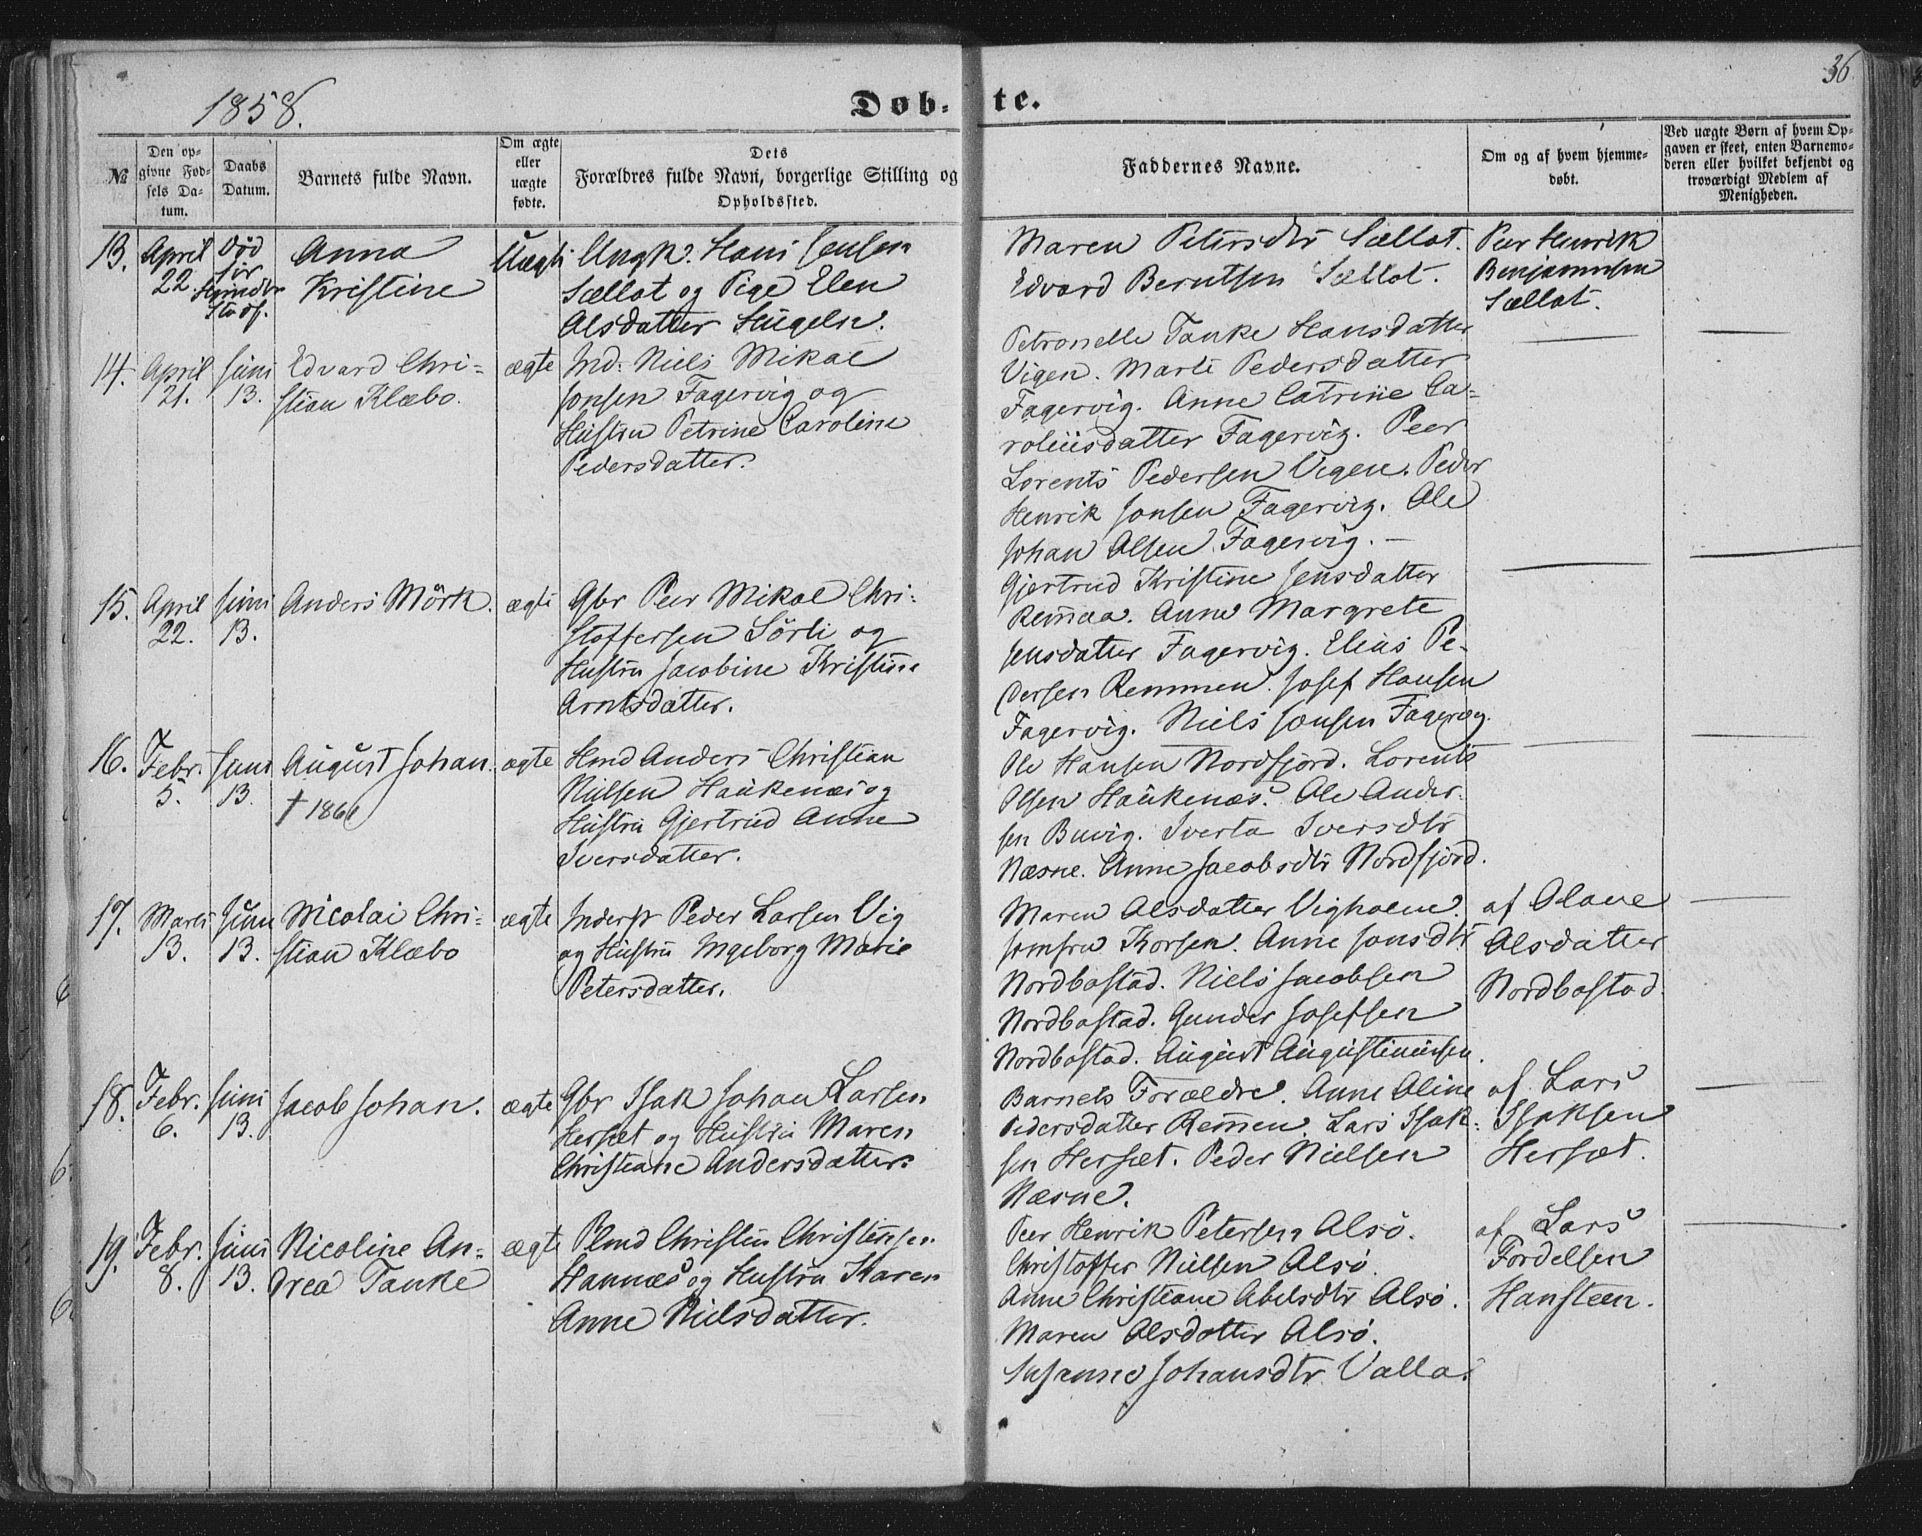 1858.
Døb-te.
36
№
Den op-
givne Fød-
sels Da-
tum.
Daabs
Datum.
Barnets fulde Navn.
Om ægte
eller
uægte
fødte.
Dets
Forældres fulde Navn, borgerlige Stilling og
Opholdssted.
Faddernes Navne.
Om og af hvem hjemme-
døbt.
Ved uægte Børn af hvem Op-
gaven er skeet, enten Barnemo-
deren eller hvilket bekjendt og
troværdigt Medlem af
Menigheden.
13.
April
22
død
før
Anna
Kristine
Uægte
Ungk. Hans Jensen
Sællot og Pige Elen
Olsdatter
Maren Petersdtr Sællot.
Edvard Berntsen Sællot.
Peer Henrik
Benjaminsen
Sællot.
14.
April
21.
Juni
13.
Edvard Chri-
stian Klæbo.
ægte
Ind: Niels Mikal
Jonsen Fagervig og
Hustru Petrine Caroline
Pedersdatter.
Petronelle Tanke Hansdatter
Vigen. Marte Pedersdatter
Fagervig. Anne Catrine Ca-
roliusdatter Fagervig. Peer
Lorents Pedersen Vigen. Peder
Henrik Jonsen Fagervig. Ole
Johan Olsen Fagervig. —
15.
April
22.
Juni
13.
Anders Mörk.
ægte
Gbr Peer Mikal Chri-
stoffersen Sörli og
Hustru Jacobine Kristine
Arntsdatter.
Gjertrud Kristine Jensdatter
Remaa. Anne Margrete
Jensdatter Fagervig. Elias Pe-
dersen Remmen. Josef Hansen
Fagervig. Niels Jonsen Fagervig.
16.
Febr.
5.
Juni
13.
August Johan.
† 1861
ægte
Hmd Anders Christian
Nielsen Haukenæs og
Hustru Gjertrud Anne
Iversdatter.
Ole Hansen Nordfjord. Lorents
Olsen Haukenæs. Ole Ander-
sen Buvig. Iverta Iversdtr
Næsne. Anne Jacobsdtr Nordfjord.
17.
Marts
13.
Juni
13.
Nicolai Chri-
stian Klæbo
ægte
Inderst Peder Larsen Vig
og Hustru Ingeborg Marie
Petersdatter.
Maren Olsdatter Vigholm.
Jomfru Korsen. Anne Jonsdtr
Nordbostad. Niels Jacobsen
Nordbostad. Gunder Josefsen
Nordbostad. August Augustinussen.
af Olave
Olsdatter
Nordbostad
18.
Febr.
6.
Juni
13.
Jacob Johan.
ægte
Gbr Isak Johan Larsen
Hersæt og Hustru Maren
Christiane Andersdatter.
Barnets Forældre. Anne Oline
Pedersdatter Remen. Lars Isak-
sen Hersæt. Peder Nielsen
Næsne.
af Lars
Isaksen
Hersæt.
19.
Febr.
8.
Juni
13.
Nicoline An-
drea Tanke
ægte
Plmd Christen Christensen
Hannæs og Hustru Karen
Anne Nielsdatter.
Peer Henrik Petersen Alsö.
Christoffer Nielsen Alsö.
Anne Christiane Abelsdtr Alsö.
Maren Olsdatter Alsö.
Susanne Johansdtr Valla.
af Lars
Fordelsen
Hansteen.